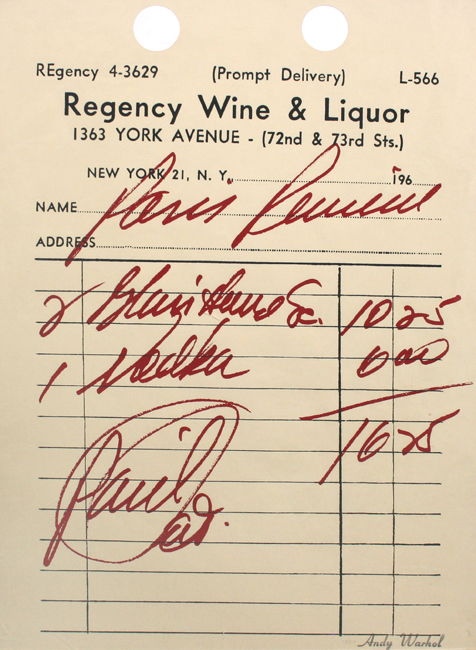 REgency 4-3629 (Prompt Delivery) L-566
Regency Wine & Liquor
1363 YORK AVENUE - (72nd & 73rd Sts.)
NEW YORK 21, N. Y. 196
NAME Paris Review
ADDRESS
2 Sc. 10 25
1 Vodka 6 00
16 25
Paid
Andy Warhol